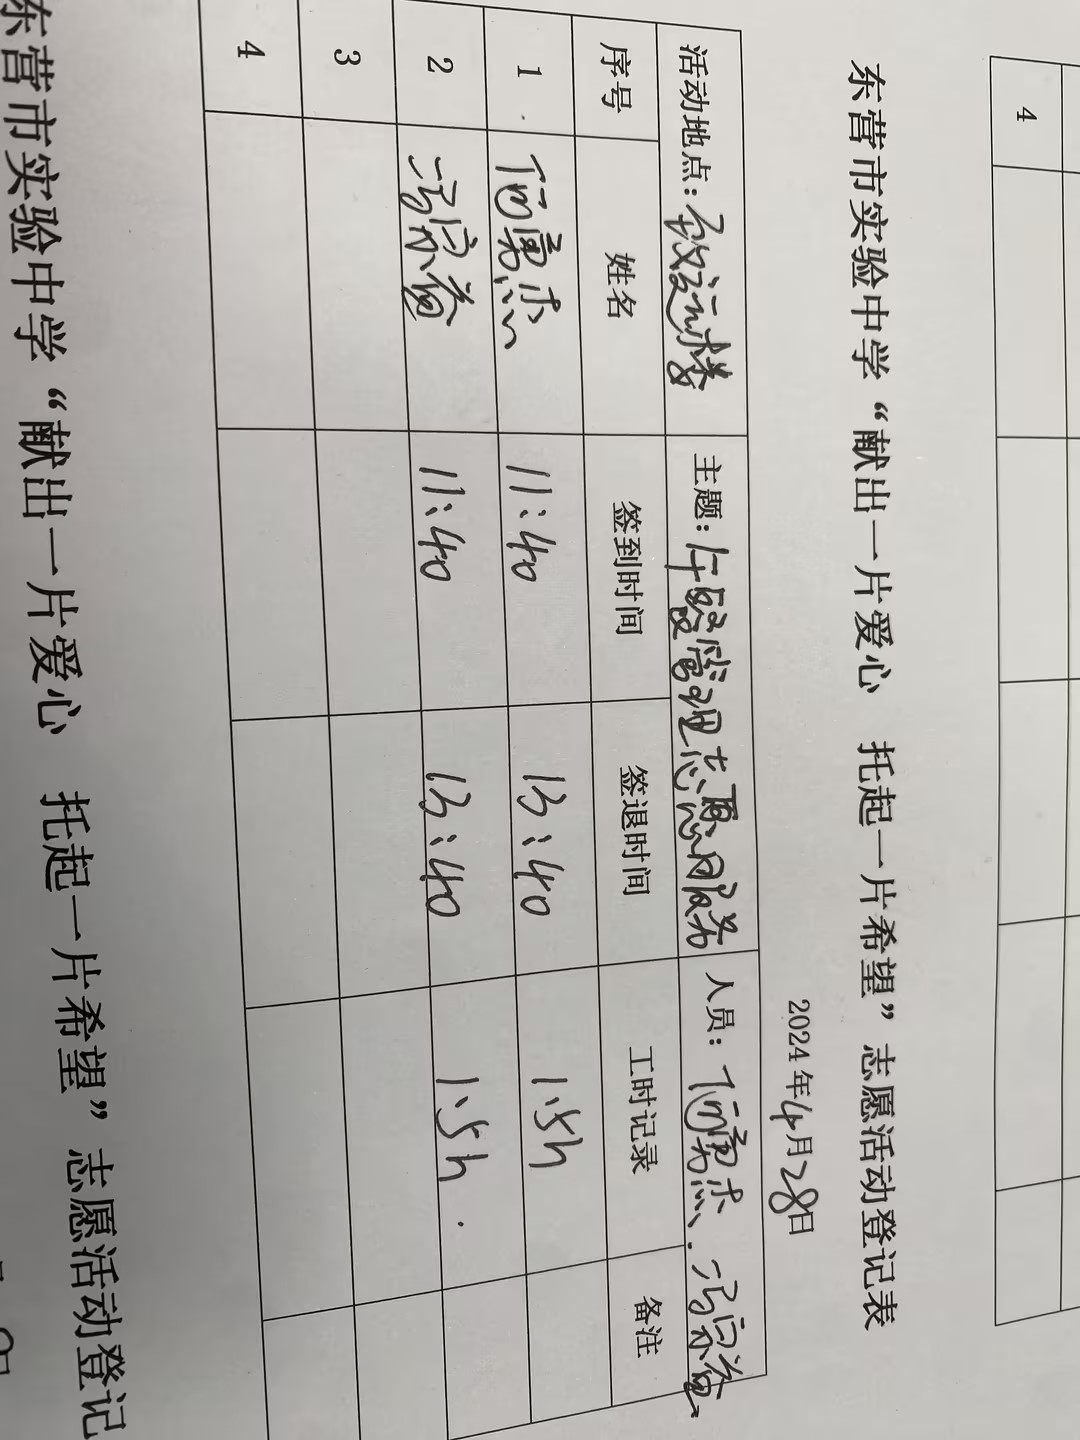 4
东营市实验中学“献出一片爱心 托起一片希望”志愿活动登记表
2024年4月28日
活动地点：致远楼 主题：午餐管理志愿服务 人员：
序号 姓名 签到时间 签退时间 工时记录 备注
1. 11:40 13:40 1.5h
2 11:40 13:40 1.5h.
3
4
东营市实验中学“献出一片爱心 托起一片希望”志愿活动登记